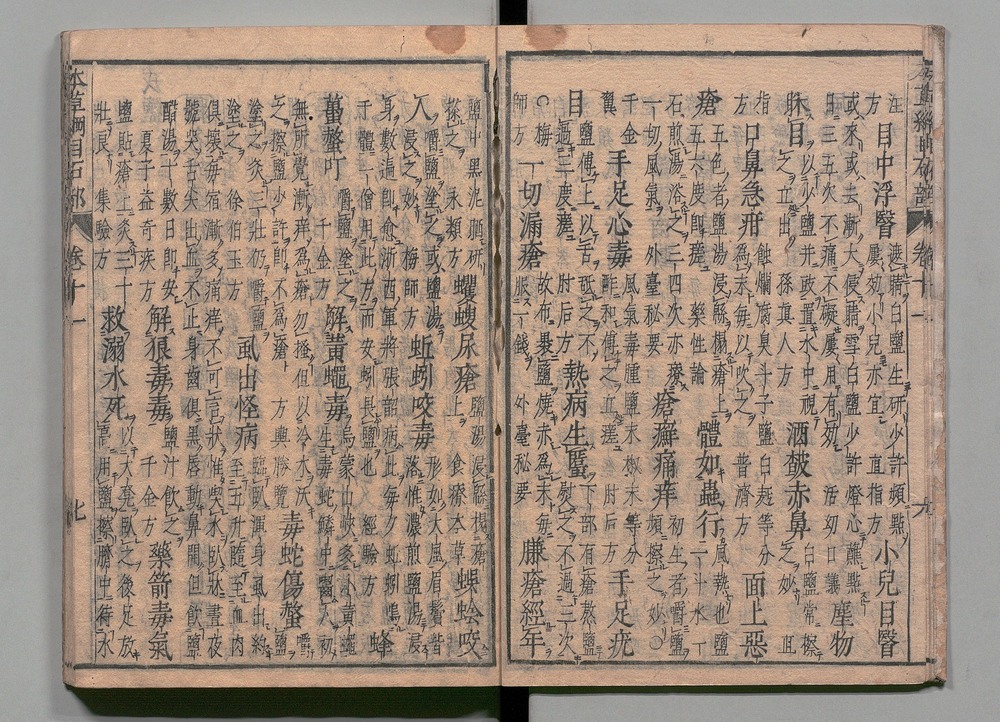 注
方 目中浮醫 遮睛白鹽生研少許頻點
屢效小兒亦宜 直指方 小兒目醫
或來或去漸大侵睛雪白鹽少許燈心蘸點
日三五次不痛不礙屢用有効 活幼口議 塵物
眯目 以少鹽并豉置水中視
之立出 孫眞人方 酒皶赤鼻 白鹽常擦
之妙 直
指
方 口鼻急疳 蝕爛腐臭斗子鹽白麪等分
爲末每以吹之 普濟方 面上惡
瘡 五色者鹽湯浸緜搨瘡上
五六度卽瘥 藥性論 體如蟲行 風熱也
鹽一斗水一
石煎湯浴之三四次亦療
一切風氣 外臺秘要 瘡癬痛痒 初生者嚼鹽
頻擦之妙○
千金
翼 手足心毒 風氣毒腫鹽末椒末等分
酢和傅之立瘥 肘后方 手足疣
目 鹽傅上以舌舐之不
過三度瘥 肘后方 熱病生䘌 下部有瘡熬鹽
緜裹熨之不過三次
○梅
師方 一切漏瘡 故布裹鹽燒赤爲末每
服一錢 外臺秘要 臁瘡經年
鹽中黑泥晒研
搽之 永類方 蠼螋尿瘡 鹽湯浸緜搨瘡
上 食療本草 蜈蚣咬
人 嚼鹽塗之或鹽湯
浸之妙 梅師方 蚯蚓咬毒 形如大風眉鬢皆
落惟濃煎鹽湯浸
身數遍卽愈浙西軍將張韶病此每夕蚯蚓鳴
于體一僧用此方而安蚓畏鹽也 經驗方 蜂
蠆螫叮 嚼鹽塗之
千金方 解黃蠅毒 烏蒙山峽多小黃蠅
生毒蛇鱗中嚙人初
無所覺漸痒爲瘡勿搔但以冷水沃
之擦鹽少許卽不爲瘡 方輿勝覽 毒蛇傷螫 嚼鹽
塗之灸三壯仍嚼鹽
塗之 徐伯玉方 虱出怪病 臨臥渾身虱出約
至五升隨至血肉
俱壞每宿漸多痛痒不可言狀惟喫水臥牀晝夜
號哭舌尖出血不止身齒俱黑唇動鼻開但飲鹽
醋湯十數日卽安
夏子益奇疾方 解狼毒毒 鹽汁飲之
千金方 藥箭毒氣
鹽貼瘡上灸三十
壯良 集驗方 救溺水死 以大凳臥之後足放
高用鹽擦臍中待水
本草綱目石部 卷十一